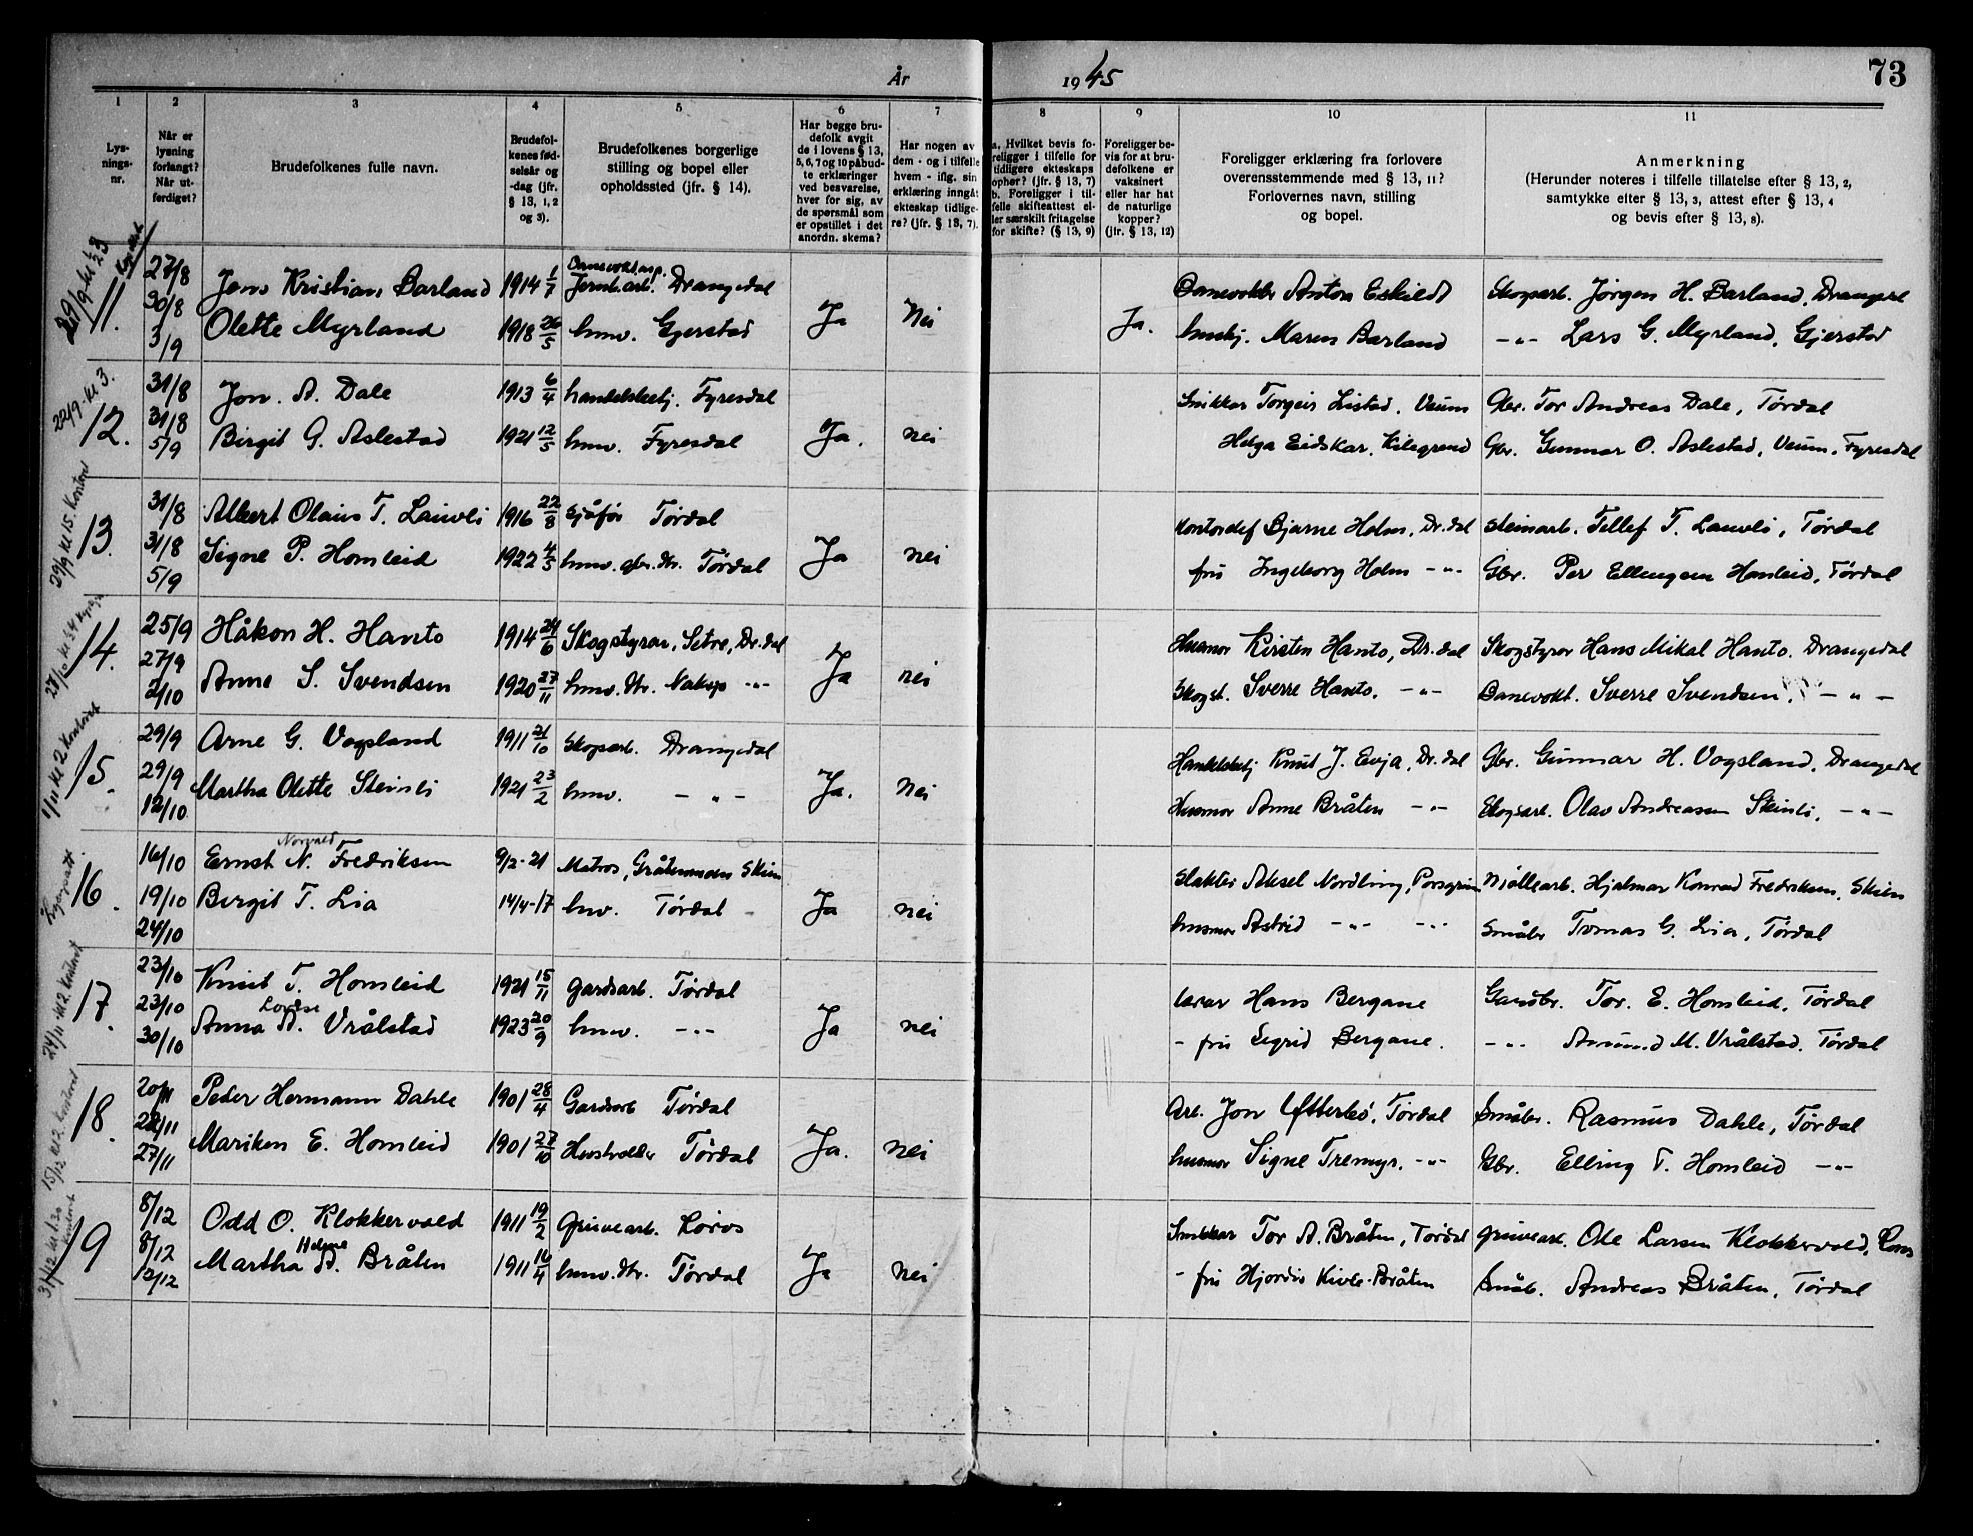 År 1945 73
1 2 3 4 5 6 7 8 9 10 11
Lysningsnr.
Når er lysning forlangt? Når utferdiget?
Brudefolkenes fulle navn.
Brudefolkenes fødselsår og -dag (jfr. § 13, 1, 2 og 3).
Brudefolkenes borgerlige stilling og bopel eller opholdssted (jfr. § 14).
Har begge brudefolk avgitt de i lovens § 13, 5, 6, 7 og 10 påbudte erklæringer ved besvarelse, hver for sig, av de spørsmål som er opstillet i det anordn. skema?
Har nogen av dem - og i tilfelle hvem - iflg. sin erklæring inngått ekteskap tidligere? (jfr. § 13, 7).
a. Hvilket bevis foreligger i tilfelle for tidligere ekteskaps ophør? (jfr. § 13, 7) b. Foreligger i tilfelle skifteattest eller særskilt fritagelse for skifte? (§ 13, 9)
Foreligger bevis for at brudefolkene er vaksinert eller har hat de naturlige kopper? (jfr. § 13, 12)
Foreligger erklæring fra forlovere overensstemmende med § 13, 11? Forlovernes navn, stilling og bopel.
Anmerkning (Herunder noteres i tilfelle tillatelse efter § 13, 2, samtykke efter § 13, 3, attest efter § 13, 4 og bevis efter § 13, 8).
29/9
11. 27/8 Jens Kristian Barland 1914 1/7 Jernb.arb. Drangedal Banevokter Anton Eskildt Skogsarb. Jørgen H. Barland, Drangedl
30/8 Olette Myrland 1918 26/5 hmv. Gjerstad Ja Nei Ja. husbj. Maren Barland -"- Lars G. Myrland, Gjerstad
3/9
22/9. kl 3.
12. 31/8 Jon. A. Dale 1913 6/4 handelsbetj. Fyresdal Snikkar Torgeir Listad, Veum Gbr. Tor Andreas Dale, Tørdal
31/8 Birgit G. Aslestad 1921 12/5 hmv. Fyresdal Ja. nei Helga Eidskar, Kilegrend Gbr. Gunnar O. Aslestad, Veum, Fyresdal
5/9
29/9 kl 15. Kontoret
13. 31/8 Albert Olaus T. Lauvli 1916 22/8 sjåfør Tørdal Kontorsjef Bjarne Holm, Dr.dal steinarb. Tellef T. Lauvli, Tørdal
31/8 Signe P. Homleid 1922 4/5 hmv. gbr. dtr. Tørdal Ja nei fru Ingeborg Holm -"- Gbr. Per Ellingsen Homleid, Tørdal
5/9
14. 25/9 Håkon H. Hanto 1914 24/6 Skogstyrar, Setre, Dr.dal Husmor Kirsten Hanto, Dr.dal Skogstyrar Hans Mikal Hanto. Drangedal
27/9 Anne S. Svendsen 1920 27/11 hmv. dtr. Nakop -"- Ja nei Skogst. Sverre Hanto. -"- Banevokt. Sverre Svendsen. -"-
2/10
1/11 kl 2. Kontoret
15. 29/9 Arne G. Vogsland 1911 21/10 Skogsarb. Drangedal Handelsbetj Knut J. Evja, Dr.dal Gbr. Gunnar H. Vogsland, Drangedal
29/9 Martha Olette Steinli 1921 23/2 hmv. -"- Ja. Nei Husmor Anne Bråten -"- Skogsarb. Olav Andreassen Steinli, -"-
12/10
16. 16/10 Ernst N. Norvald Fredriksen 9/2-21 Matros, Gråtenmoen Skien Slakter Aksel Nordling, Porsgrunn Møllearb. Hjalmar Konrad Fredriksen, Skien
19/10 Bergit T. Lia 14/4-17 hv. Tørdal Ja nei husmor Astrid -"- -"- Småbr Tomas G. Lia, Tørdal
24/10
24/11 kl 2. Kontoret
17. 23/10 Knut T. Homleid 1921 15/11 gardsarb. Tørdal Lærar Hans Bergane Gardbr. Tor. E. Homleid, Tørdal
23/10 Anna Lovise A. Vrålstad 1923 20/9 hmv. -"- Ja nei - fru Sigrid Bergane. -"- Amund M. Vrålstad. Tørdal
30/10
15/12 kl 2. Kontoret
18. 20/11 Peder Hermann Dahle 1901 28/4 Gardsarb Tørdal Arb. Jon Ytterbø, Tørdal Småbr. Rasmus Dahle, Tørdal
22/11 Mariken E. Homleid 1901 27/10 Husholder Tørdal Ja. nei husmor Signe Tremyr. -"- Gbr. Elling T. Homleid -"-
27/11
31/12 kl 1.30 Kontoret
19 8/12 Odd O. Klokkervold 1911 19/2 gruvearb. Røros Snekkar Tor A. Bråten, Tørdal gruvearb. Ole Larsen Klokkervold, Røros
8/12 Martha Helene A. Bråten 1911 16/4 hmv. dtr. Tørdal Ja nei - fru Hjordis Kivle-Bråten Småb. Andreas Bråten, Tørdal
12/12